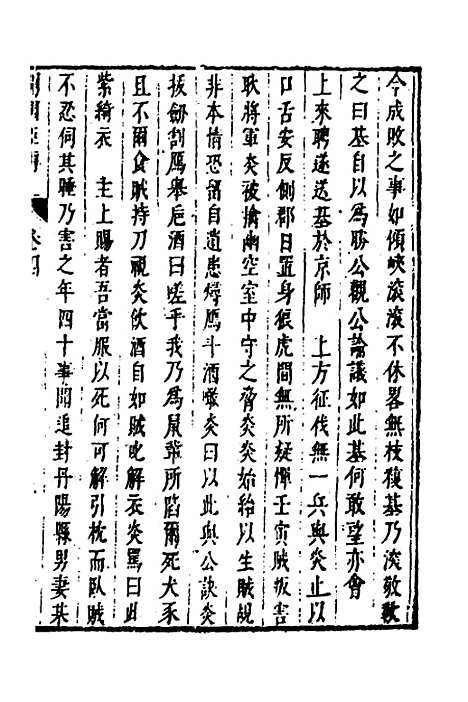 今成敗之事如傾峽滾滾不休畧無枝複基乃深敬歎
之曰基自以爲勝公觀公論議如此基何敢望亦會
上來聘遂送基於京師　上方征伐無一兵與炎止以
口舌安反側郡日置身狼虎間無所疑憚壬寅賊叛害
耿將軍炎被擒幽空室中守之脅炎炎始紿以生賊覘
非本情恐留自遺患燖鴈斗酒噉炎曰以此與公訣炎
拔劒割鴈舉巵酒曰嗟乎我乃爲鼠輩所陷爾死犬豕
且不爾食賊持刀視炎飲酒自如賊叱解衣炎罵曰此
紫綺衣　主上賜者吾當服以死何可解引枕而臥賊
不忍伺其睡乃害之年四十事聞追封丹陽縣男妻某
卷四